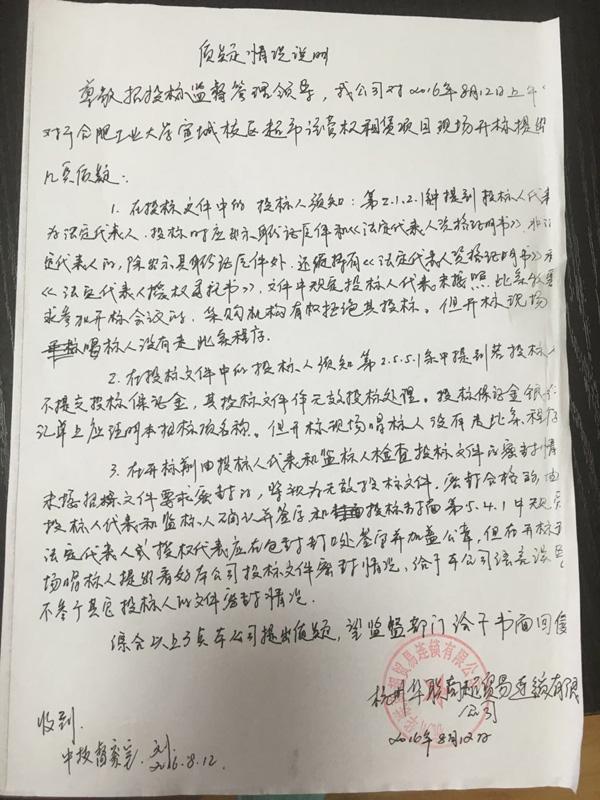 质疑情况说明
尊敬招投标监督管理领导，我公司对2016年8月12日上午
对于合肥工业大学宣城校区超市运营权租赁项目现场开标提出
几点质疑：
1. 在投标文件中的投标人须知：第2.1.2.1种提到投标人代表
为法定代表人，投标时应出示身份证原件和《法定代表人资格证明书》，非法
定代表人的，除出示其身份证原件外，还应持有《法定代表人资格证明书》
《法定代表人授权委托书》，文件中规定投标人代表未按照此条款要
求参加开标会议的，采购机构有权拒绝其投标。但开标现场
唱标人没有走此条程序。
2. 在投标文件中的投标人须知第2.5.5.1条中提到若投标人
不提交投标保证金，其投标文件作无效投标处理。投标保证金银行
汇单上应证明本招标项名称。但开标现场唱标人没有走此条程序
3. 在开标前由投标人代表和监标人检查投标文件的密封情
未按招标文件要求密封的，将视为无效投标文件。密封合格的由
投标人代表和监标人确认并签字和投标封面第5.4.1中规定
法定代表人或授权代表应在包封封口处签字并加盖公章，但在开标现
场唱标人提出看好本公司投标文件密封情况，给予本公司
不参于其它投标人的文件密封情况。
综合以上3点本公司提出质疑，望监督部门给予书面回复
杭州华联商超贸易连锁有限
公司
2016年8月12日
收到.
中技
2016.8.12.
超贸易连锁有限公